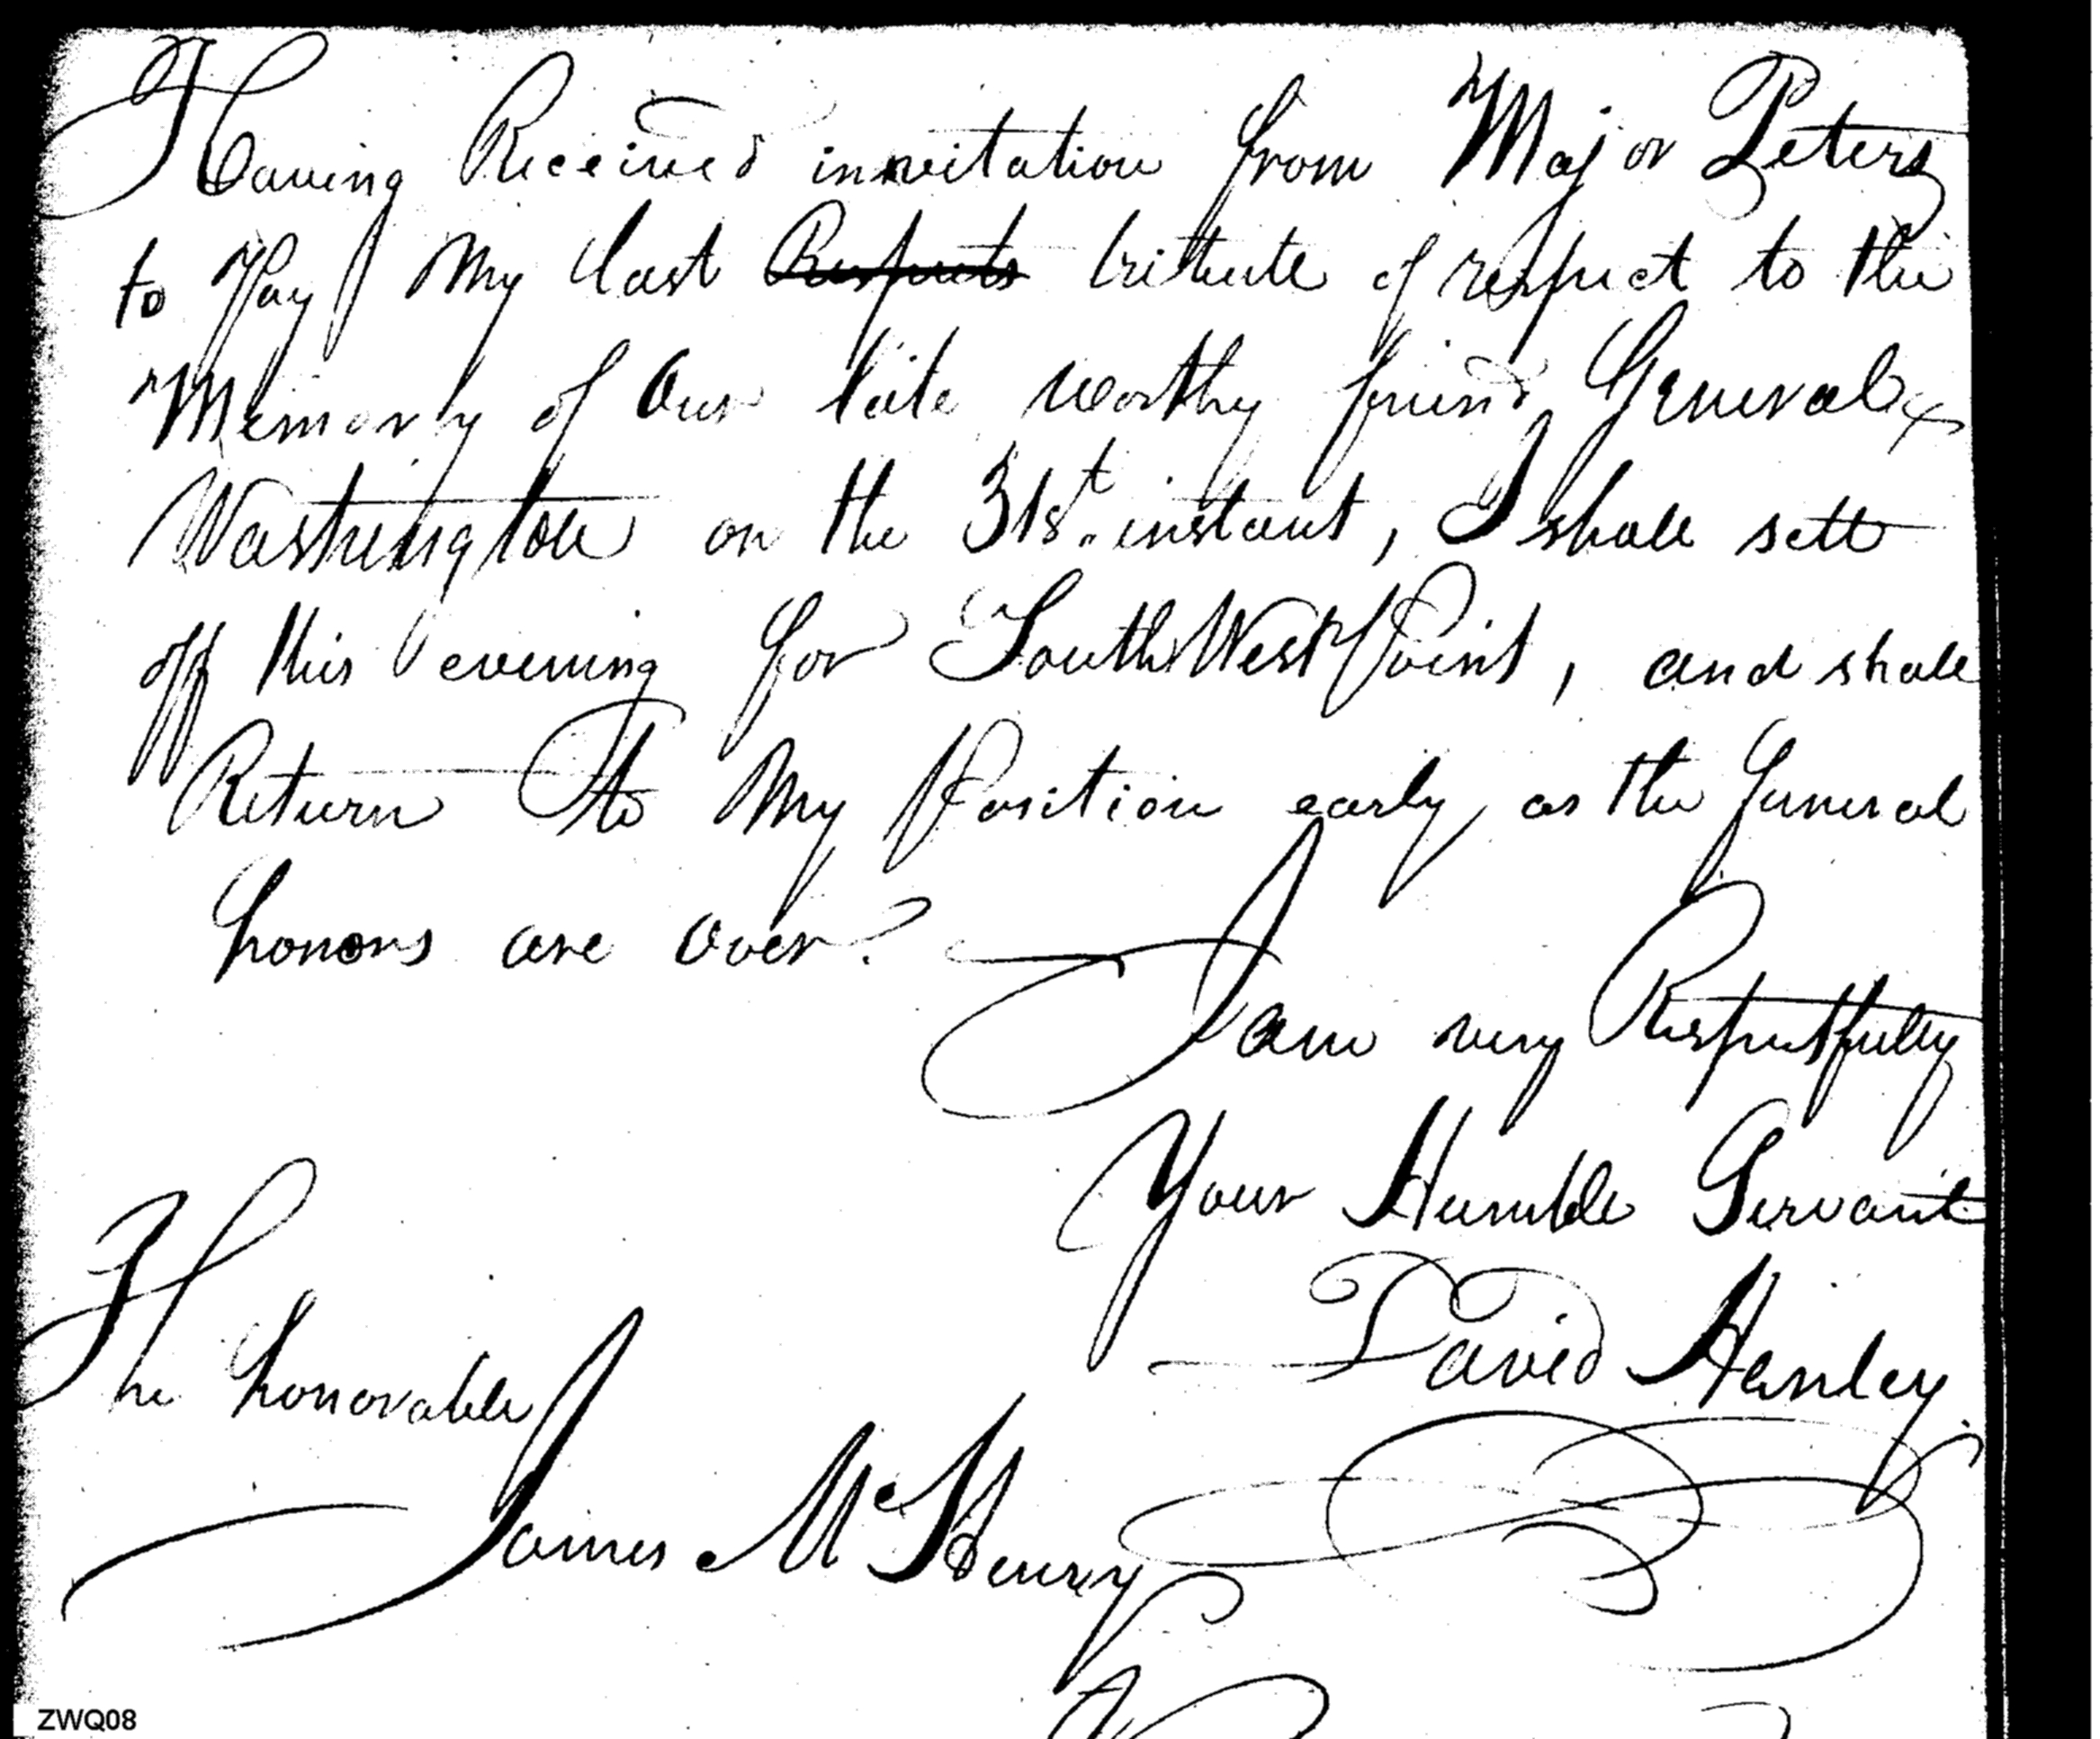 Having Received invitation from Major Peters
to Pay My last Respects tribute of respect to the
Memory of Our late worthy friend General
Washington on the 31st. instant, I shall sett
off this evening for South West Point, and shall
Return to My Position early as the funeral
honors are over.
I am very Respectfully
Your Humble Servant
David Henley
The honorable
James McHenry
ZWQ08